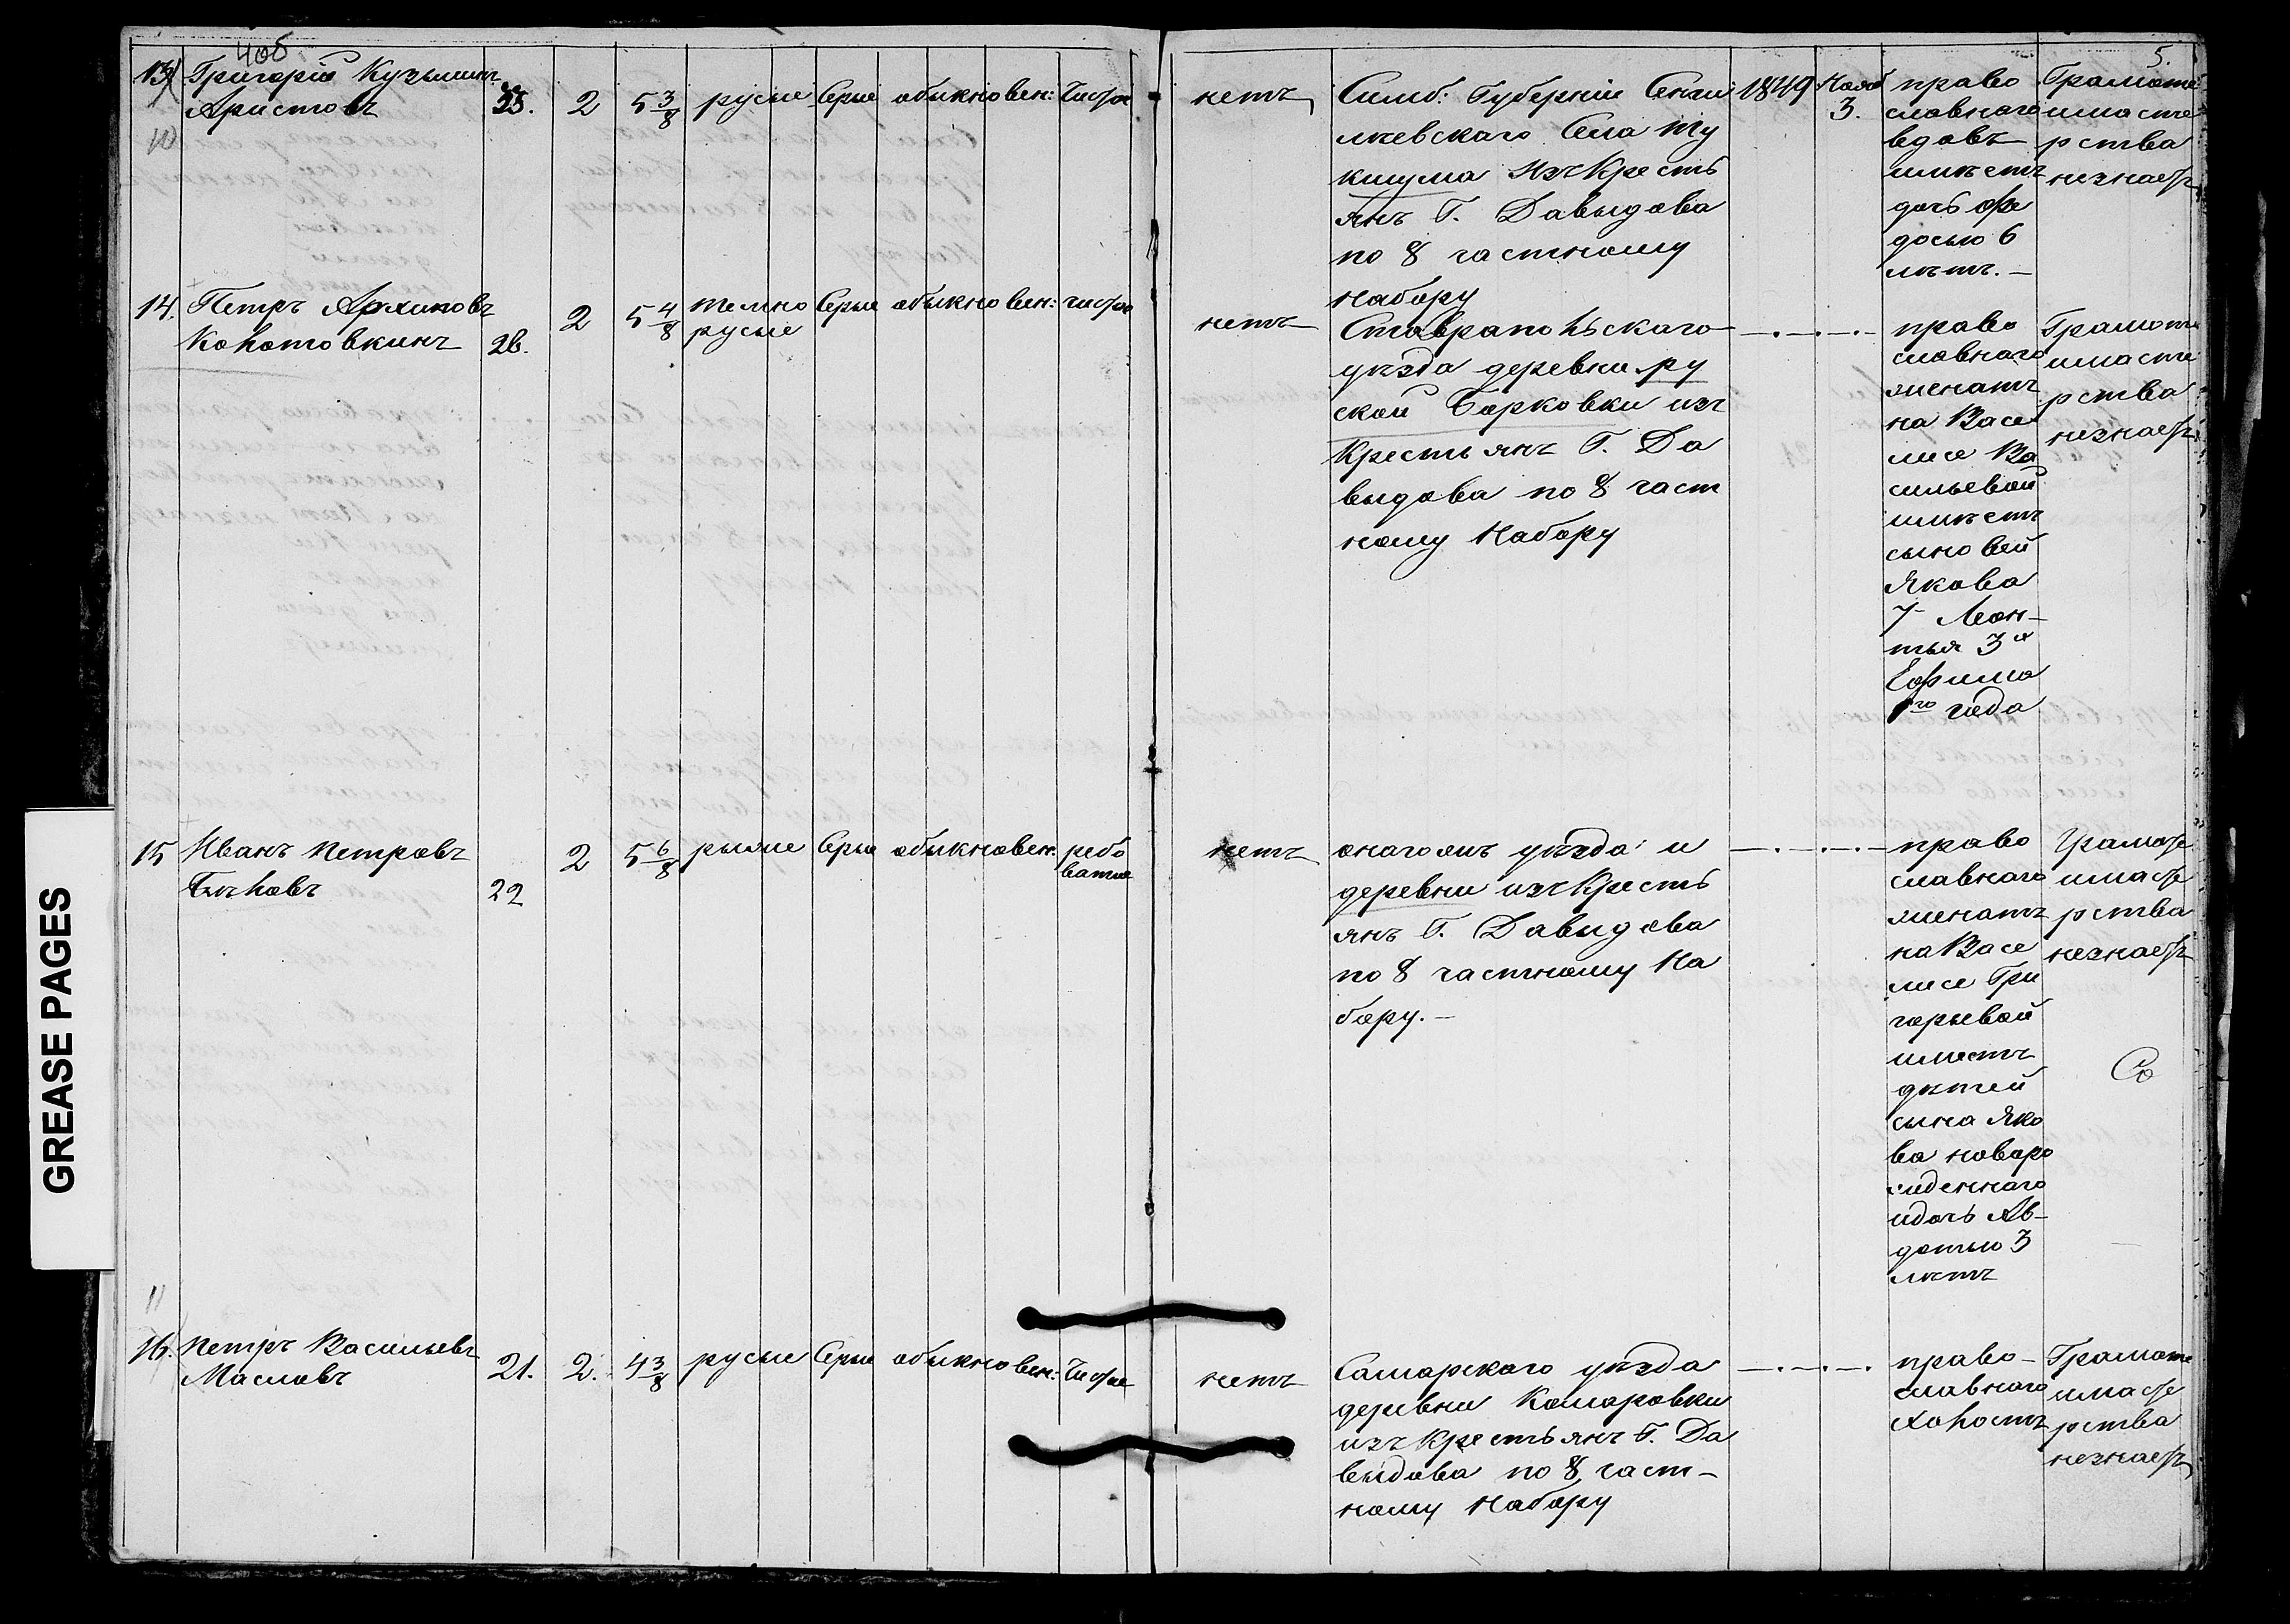 406
5.
13
Григорій Кузьминъ
Аристовъ
10
2
5 3/8
русые
Серые
обыкновен:
Чистое
нетъ
Симб: Губерніи Сенги
леевскаго Села Ту
кшума Изъ Кресть
янъ Г. Давыдова
по 8 частному
Набору
1849
Нояб
3.
право
славнаго
вдовъ
имѣетъ
дочь Фе
досью 6
лѣтъ. —
Грамоте
имасте
рства
незнаетъ
14.
Петръ Архиповъ
Колотовкинъ
26.
2
5 4/8
темно
русые
Серые
обыкновен:
чистое
нетъ
Ставрапольскаго
уѣзда деревни Ру
ской Борковки изъ
Крестьянъ Г. Да
выдова по 8 част
ному Набору
право
славнаго
женатъ
на Васе
лисе Ва
сильевой
имѣетъ
сыновей
Якова
7 Леон-
тья 3х
Ефима
1го года
Грамоте
имасте
рства
незнаетъ
15
Иванъ Петровъ
Бѣловъ
22
2
5 6/8
рыжие
Серые
обыкновен:
ребо
ватое
нетъ
онагожъ уѣзда и
деревни изъ Кресть
янъ Г. Давыдова
по 8 частному На
бору. —
право
славнаго
женатъ
на Васе
лисе Гри
горьевой
имеетъ
дѣтей
сына Яко
ва новоро
жденнаго
идочь Ав-
дотью 3
лѣтъ
Грамоте
имасте
рства
незнаетъ
11
16.
Петръ Васильевъ
Масловъ
21.
2.
4 3/8
русые
Серые
обыкновен:
Чистое
нетъ
Самарскаго уѣзда
деревни Комаровки
изъ Крестьянъ Г. Да
выдова по 8 част-
ному Набору
право-
славнаго
холостъ
Грамоте
имасте
рства
незнаетъ
GREASE PAGES